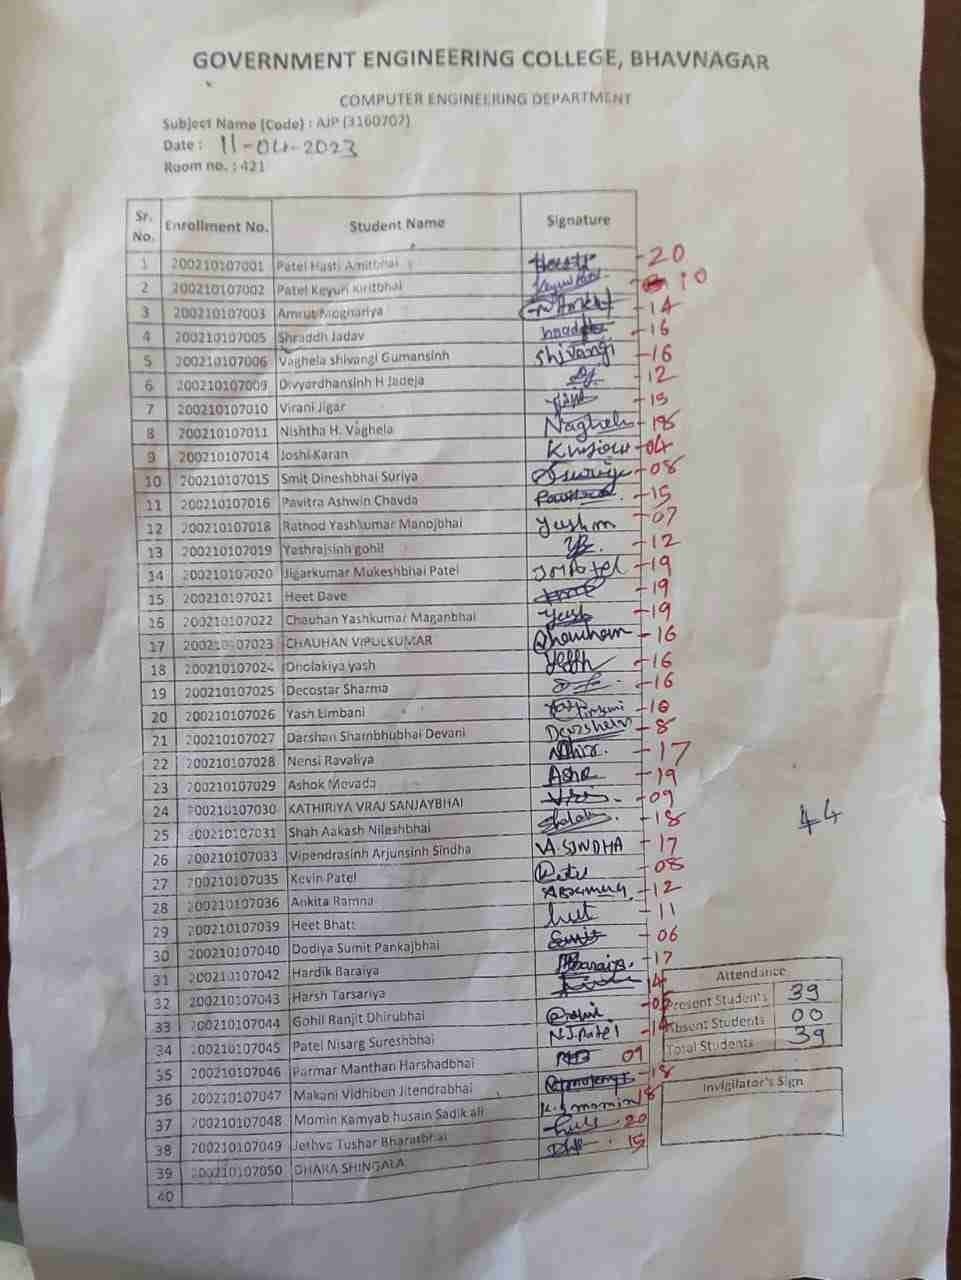 GOVERNMENT ENGINEERING COLLEGE, BHAVNAGAR
COMPUTER ENGINEERING DEPARTMENT
Subject Name (Code) : AJP (3160707)
Date : 11-04-2023
Room no. : 421
Sr. No. Enrollment No. Student Name Signature
1 200210107001 Patel Hasti Amitbhai - 20
2 200210107002 Patel Keyuri Kiritbhai 10
3 200210107003 Amrut Moghariya - 14
4 200210107005 Shraddh Jadav - 16
5 200210107006 Vaghela shivangi Gumansinh Shivangi - 16
6 200210107009 Divyardhansinh H Jadeja - 12
7 200210107010 Virani Jigar - 15
8 200210107011 Nishtha H. Vaghela - 18
9 200210107014 Joshi Karan - 04
10 200210107015 Smit Dineshbhai Suriya - 08
11 200210107016 Pavitra Ashwin Chavda - 15
12 200210107018 Rathod Yashkumar Manojbhai Yash m - 07
13 200210107019 Yashrajsinh gohil - 12
14 200210107020 Jigarkumar Mukeshbhai Patel J M Patel - 19
15 200210107021 Heet Dave - 19
16 200210107022 Chauhan Yashkumar Maganbhai Yash - 19
17 200210107023 CHAUHAN VIPULKUMAR - 16
18 200210107024 Dholakiya yash - 16
19 200210107025 Decostar Sharma - 16
20 200210107026 Yash Limbani
21 200210107027 Darshan Shambhubhai Devani - 8
22 200210107028 Nensi Ravaliya - 17
23 200210107029 Ashok Mevada - 19
24 200210107030 KATHIRIYA VRAJ SANJAYBHAI - 09
25 200210107031 Shah Aakash Nileshbhai - 18
26 200210107033 Vipendrasinh Arjunsinh Sindha V.A.SINDHA - 17
27 200210107035 Kevin Patel - 08
28 200210107036 Ankita Ramna - 12
29 200210107039 Heet Bhatt - 11
30 200210107040 Dodiya Sumit Pankajbhai Sumit - 06
31 200210107042 Hardik Baraiya - 17
32 200210107043 Harsh Tarsariya 14
33 200210107044 Gohil Ranjit Dhirubhai
34 200210107045 Patel Nisarg Sureshbhai N.J.Patel - 14
35 200210107046 Parmar Manthan Harshadbhai 09
36 200210107047 Makani Vidhiben Jitendrabhai - 18
37 200210107048 Momin Kamyab husain Sadik ali momin 18
38 200210107049 Jethva Tushar Bharatbhai 20
39 200210107050 DHARA SHINGALA 15
40
44
Attendance
Present Students 39
Absent Students 00
Total Students 39
Invigilator's Sign